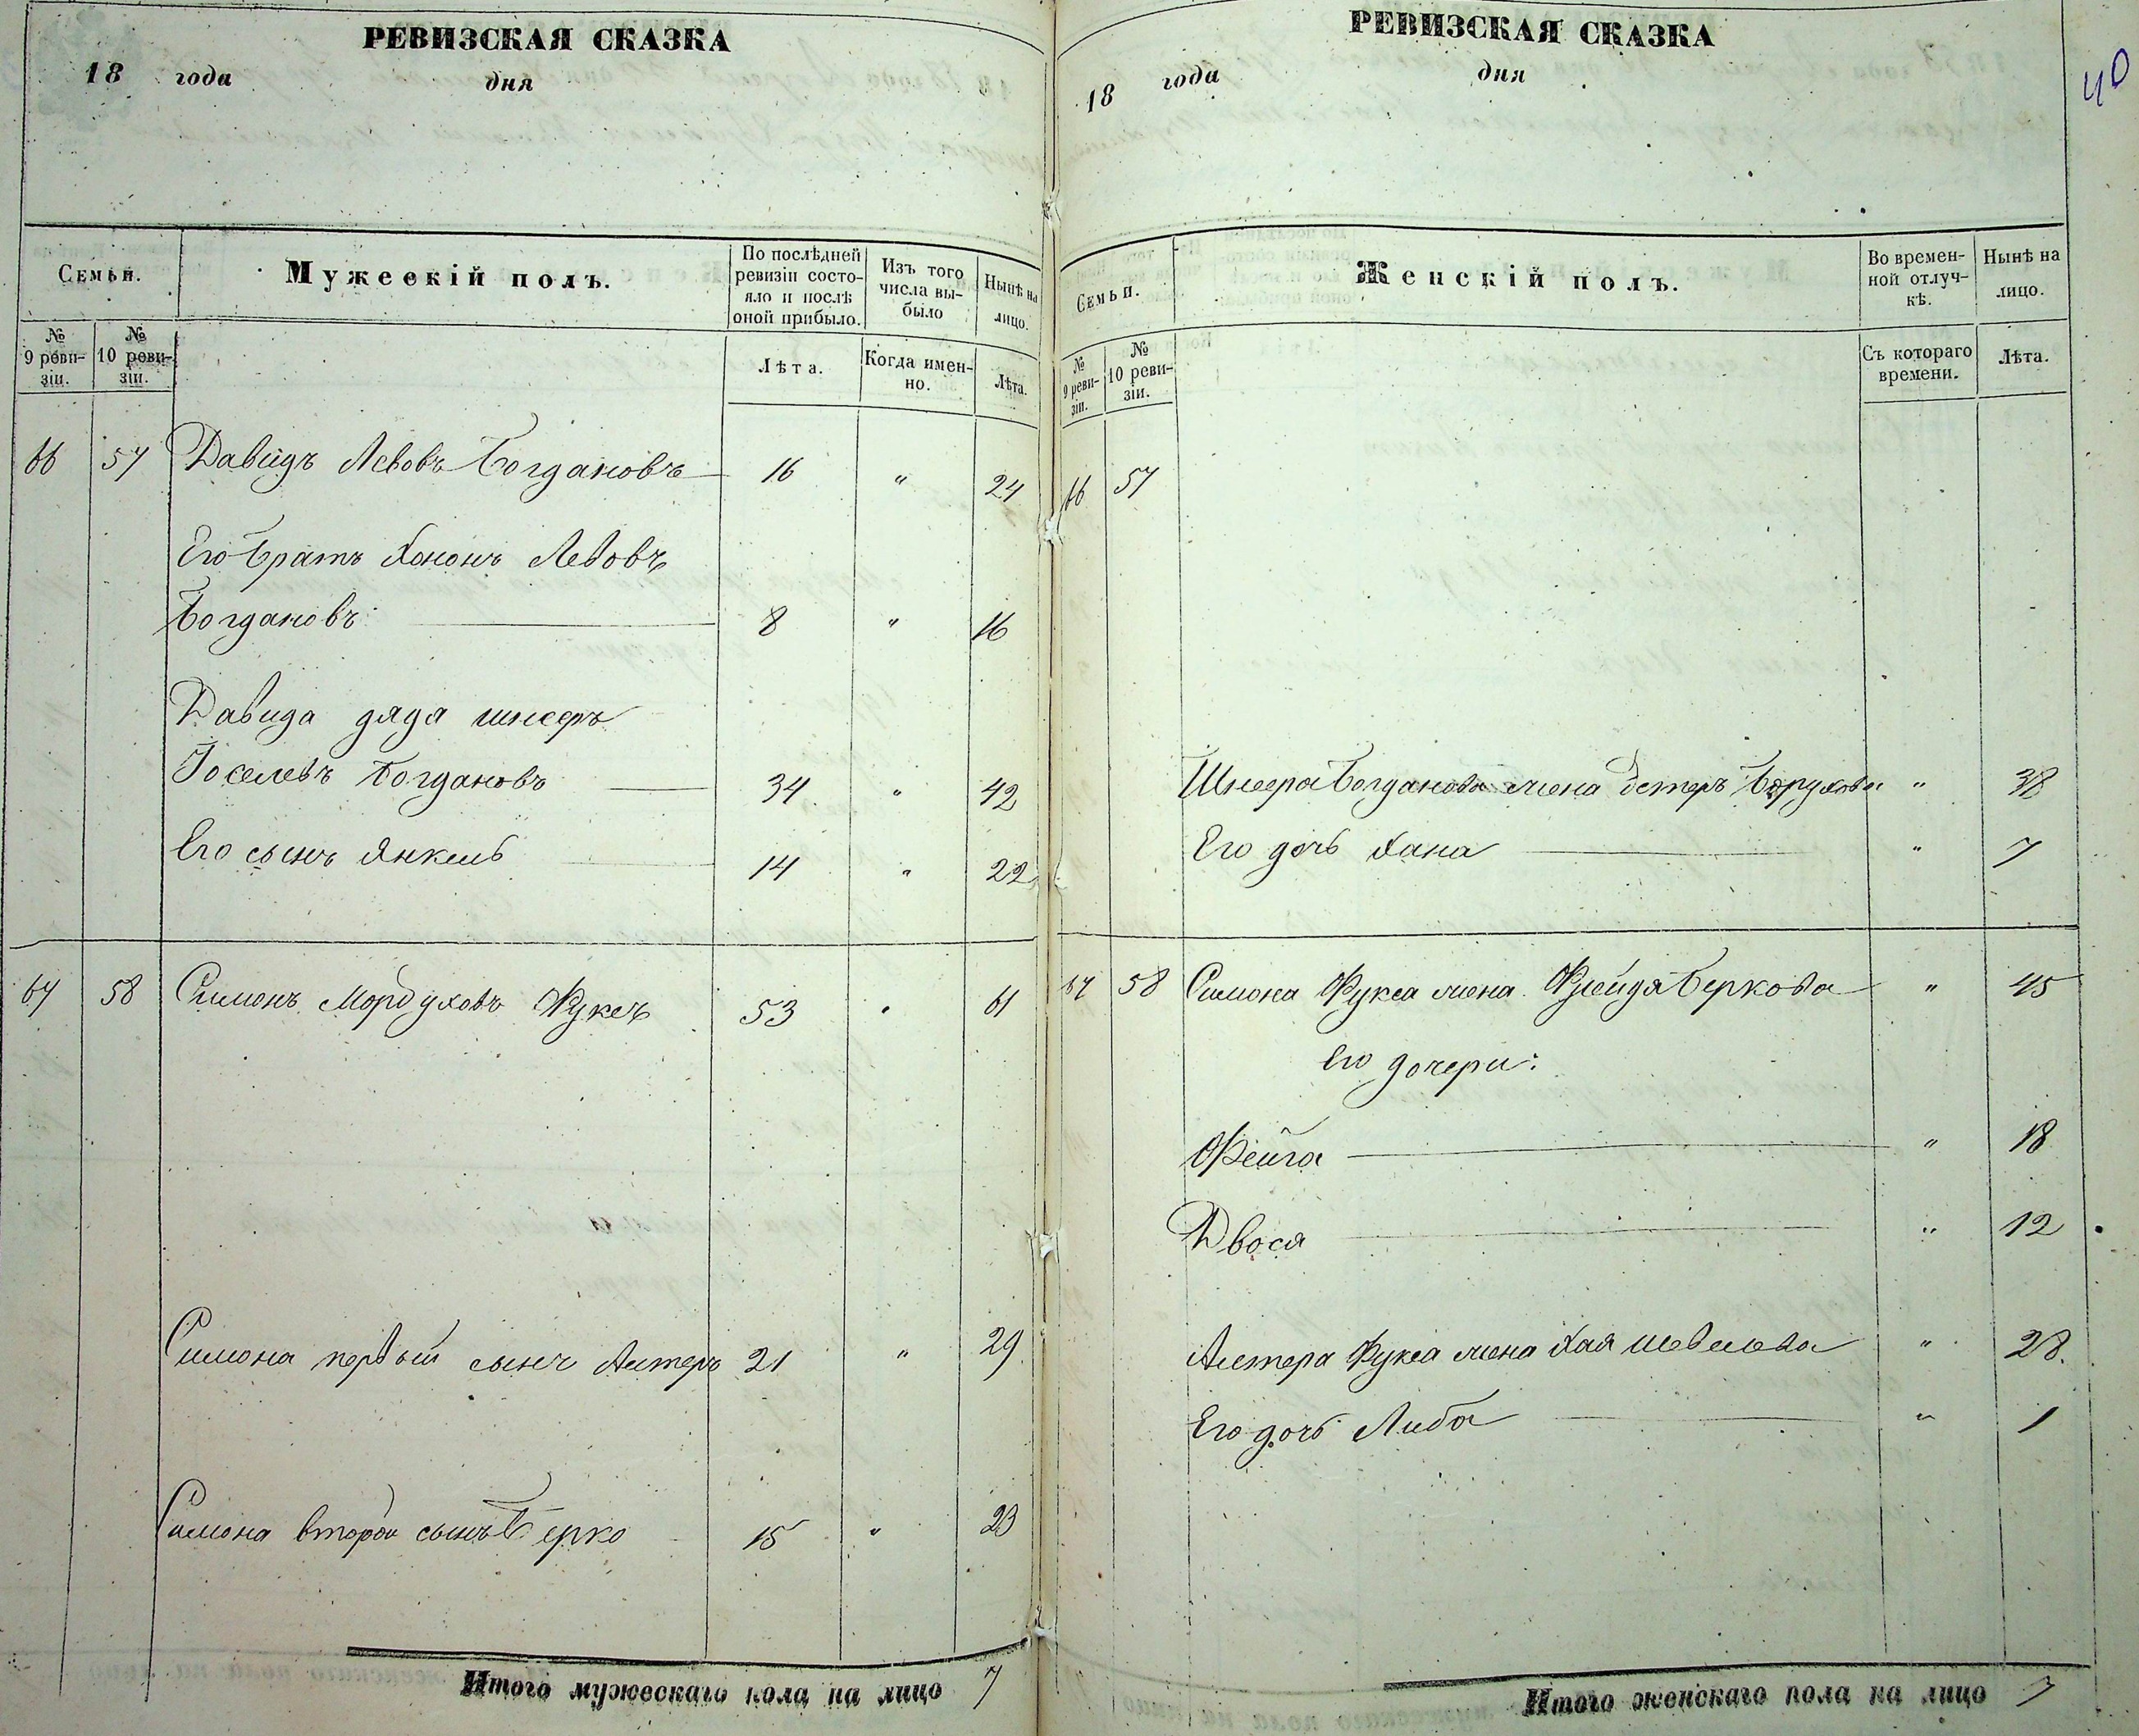 РЕВИЗСКАЯ СКАЗКА
18 года дня
Семьи.
Мужескій полъ.
По послѣдней ревизіи состояло и послѣ оной прибыло.
Изъ того числа выбыло
Нынѣ на лицо.
№ 9 ревизіи.
№ 10 ревизіи.
Лѣта.
Когда именно.
Лѣта.
66 57 Давидъ Левовъ Богдановъ 16 " 24
Его братъ Хононъ Левовъ
Богдановъ 8 " 16
Давида дядя Шнееръ
Іоселевъ Богдановъ 34 " 42
Его сынъ Янкель 14 " 22
67 58 Симонъ Мордуховъ Фуксъ 53 " 61
Симона первый сынъ Алтеръ 21 " 29
Симона второй сынъ Берко 15 " 23
Итого мужескаго пола на лицо 7
40
РЕВИЗСКАЯ СКАЗКА
18 года дня
Семьи.
Женскій полъ.
Во временной отлучкѣ.
Нынѣ на лицо.
№ 9 ревизіи.
№ 10 ревизіи.
Съ котораго времени.
Лѣта.
66 57
Шнеера Богданова жена Эстеръ Борухова " 38
Его дочь Хана " 7
67 58 Симона Фукса жена Фрейда Беркова " 45
Его дочери:
Фейга " 18
Двося " 12
Алтера Фукса жена Хая Шевелева " 28.
Его дочь Либа " 1
Итого женскаго пола на лицо 7